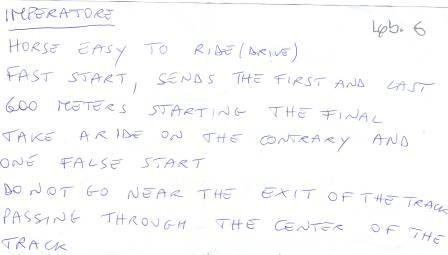 IMPERATORE
HORSE EASY TO RIDE (DRIVE)
FAST START, SENDS THE FIRST AND LAST
600 METERS STARTING THE FINAL
TAKE A RIDE ON THE CONTRARY AND
ONE FALSE START
DO NOT GO NEAR THE EXIT OF THE TRACK
PASSING THROUGH THE CENTER OF THE
TRACK